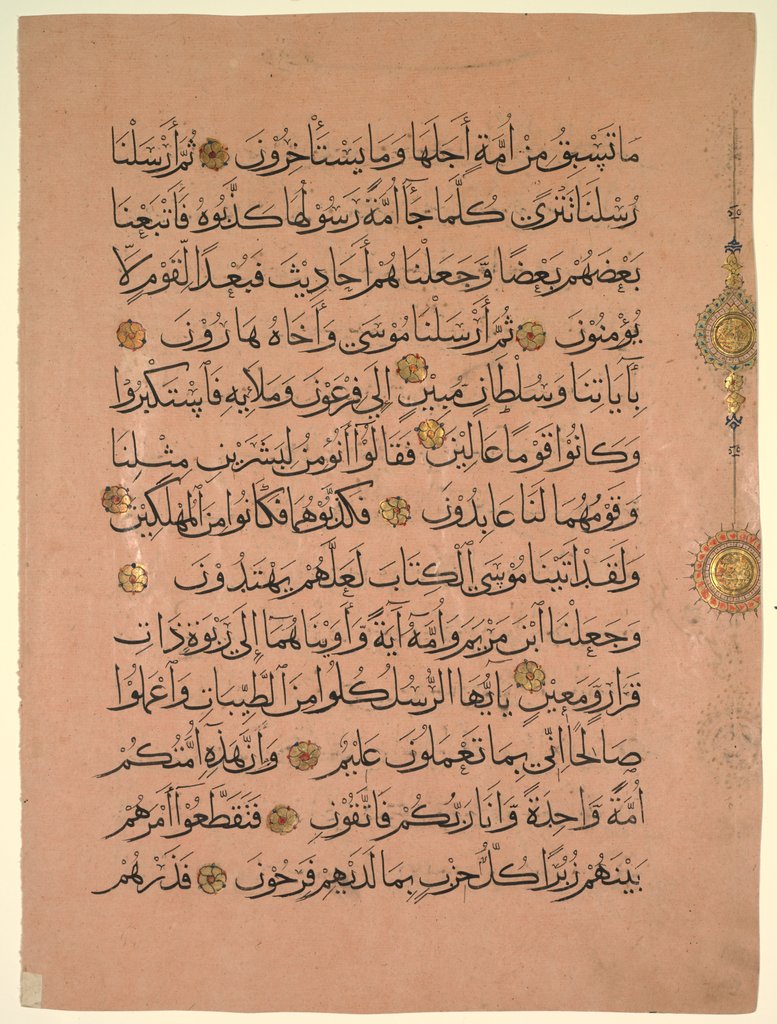 مَا تَسْبِقُ مِنْ أُمَّةٍ أَجَلَهَا وَمَا يَسْتَأْخِرُونَ ثُمَّ أَرْسَلْنَا
رُسُلَنَا تَتْرَىٰ كُلَّمَا جَآءَ أُمَّةً رَسُولُهَا كَذَّبُوهُ فَأَتْبَعْنَا
بَعْضَهُمْ بَعْضًا وَجَعَلْنَاهُمْ أَحَادِيثَ فَبُعْدًا لِقَوْمٍ لَا
يُؤْمِنُونَ ثُمَّ أَرْسَلْنَا مُوسَىٰ وَأَخَاهُ هَارُونَ
بِآيَاتِنَا وَسُلْطَانٍ مُبِينٍ إِلَىٰ فِرْعَوْنَ وَمَلَائِهِ فَاسْتَكْبَرُوا
وَكَانُوا قَوْمًا عَالِينَ فَقَالُوٓا أَنُؤْمِنُ لِبَشَرَيْنِ مِثْلِنَا
وَقَوْمُهُمَا لَنَا عَابِدُونَ فَكَذَّبُوهُمَا فَكَانُوا مِنَ الْمُهْلَكِينَ
وَلَقَدْ آتَيْنَا مُوسَى الْكِتَابَ لَعَلَّهُمْ يَهْتَدُونَ
وَجَعَلْنَا ابْنَ مَرْيَمَ وَأُمَّهُ آيَةً وَآوَيْنَاهُمَا إِلَىٰ رَبْوَةٍ ذَاتِ
قَرَارٍ وَمَعِينٍ يَآأَيُّهَا الرُّسُلُ كُلُوا مِنَ الطَّيِّبَاتِ وَاعْمَلُوا
صَالِحًا إِنِّي بِمَا تَعْمَلُونَ عَلِيمٌ وَإِنَّ هَذِهِ أُمَّتُكُمْ
أُمَّةً وَاحِدَةً وَأَنَا رَبُّكُمْ فَاتَّقُونِ فَتَقَطَّعُوٓا أَمْرَهُمْ
بَيْنَهُمْ زُبُرًا كُلُّ حِزْبٍ بِمَا لَدَيْهِمْ فَرِحُونَ فَذَرْهُمْ